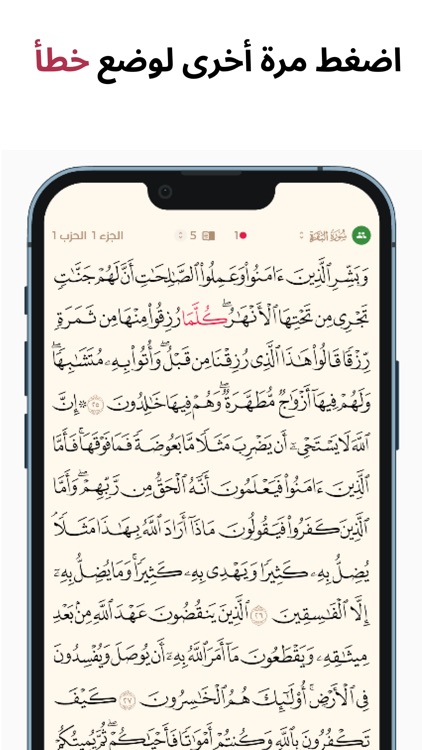 اضغط مرة أخرى لوضع خطأ
سُورَةُ البَقَرَة 1 5 الجزء 1 الحزب 1
وَبَشِّرِ ٱلَّذِينَ ءَامَنُواْ وَعَمِلُواْ ٱلصَّٰلِحَٰتِ أَنَّ لَهُمْ جَنَّٰتٍ
تَجْرِي مِن تَحْتِهَا ٱلْأَنْهَٰرُۖ كُلَّمَا رُزِقُواْ مِنْهَا مِن ثَمَرَةٍ
رِّزْقًا قَالُواْ هَٰذَا ٱلَّذِي رُزِقْنَا مِن قَبْلُۖ وَأُتُواْ بِهِۦ مُتَشَٰبِهًاۖ
وَلَهُمْ فِيهَآ أَزْوَٰجٌ مُّطَهَّرَةٌۖ وَهُمْ فِيهَا خَٰلِدُونَ ٢٥ ۞ إِنَّ
ٱللَّهَ لَا يَسْتَحْيِۦٓ أَن يَضْرِبَ مَثَلًا مَّا بَعُوضَةً فَمَا فَوْقَهَاۚ فَأَمَّا
ٱلَّذِينَ ءَامَنُواْ فَيَعْلَمُونَ أَنَّهُ ٱلْحَقُّ مِن رَّبِّهِمْۖ وَأَمَّا
ٱلَّذِينَ كَفَرُواْ فَيَقُولُونَ مَاذَآ أَرَادَ ٱللَّهُ بِهَٰذَا مَثَلًاۘ
يُضِلُّ بِهِۦ كَثِيرًا وَيَهْدِي بِهِۦ كَثِيرًاۚ وَمَا يُضِلُّ بِهِۦٓ
إِلَّا ٱلْفَٰسِقِينَ ٢٦ ٱلَّذِينَ يَنقُضُونَ عَهْدَ ٱللَّهِ مِنۢ بَعْدِ
مِيثَٰقِهِۦ وَيَقْطَعُونَ مَآ أَمَرَ ٱللَّهُ بِهِۦٓ أَن يُوصَلَ وَيُفْسِدُونَ
فِي ٱلْأَرْضِۚ أُوْلَٰٓئِكَ هُمُ ٱلْخَٰسِرُونَ ٢٧ كَيْفَ
تَكْفُرُونَ بِٱللَّهِ وَكُنتُمْ أَمْوَٰتًا فَأَحْيَٰكُمْۖ ثُمَّ يُمِيتُكُمْ